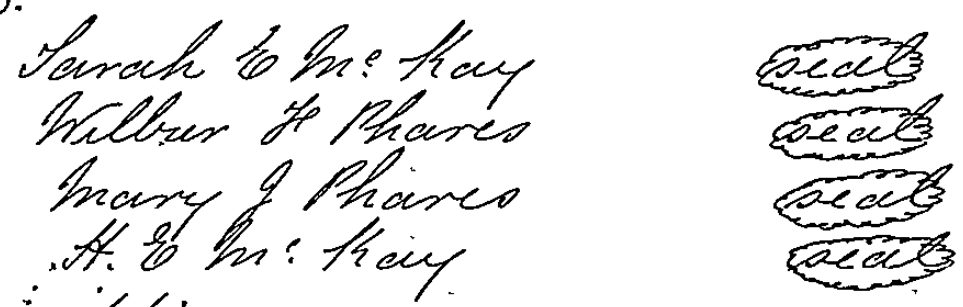 Sarah E Mc Kay seal
Wilbur H Phares seal
Mary J Phares seal
H. E Mc Kay seal